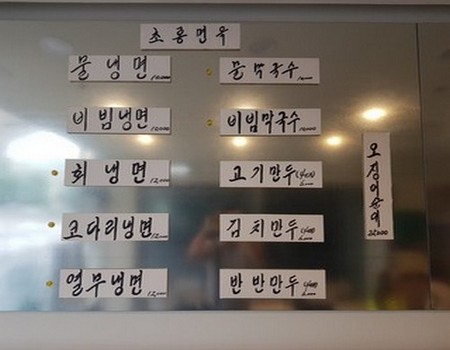 초롱면옥
물냉면 10,000
물막국수
비빔냉면 10,000
비빔막국수 10,000
회냉면 12,000
고기만두
코다리냉면 12,000
김치만두
열무냉면 12,000
반반만두
오징어순대
22,000